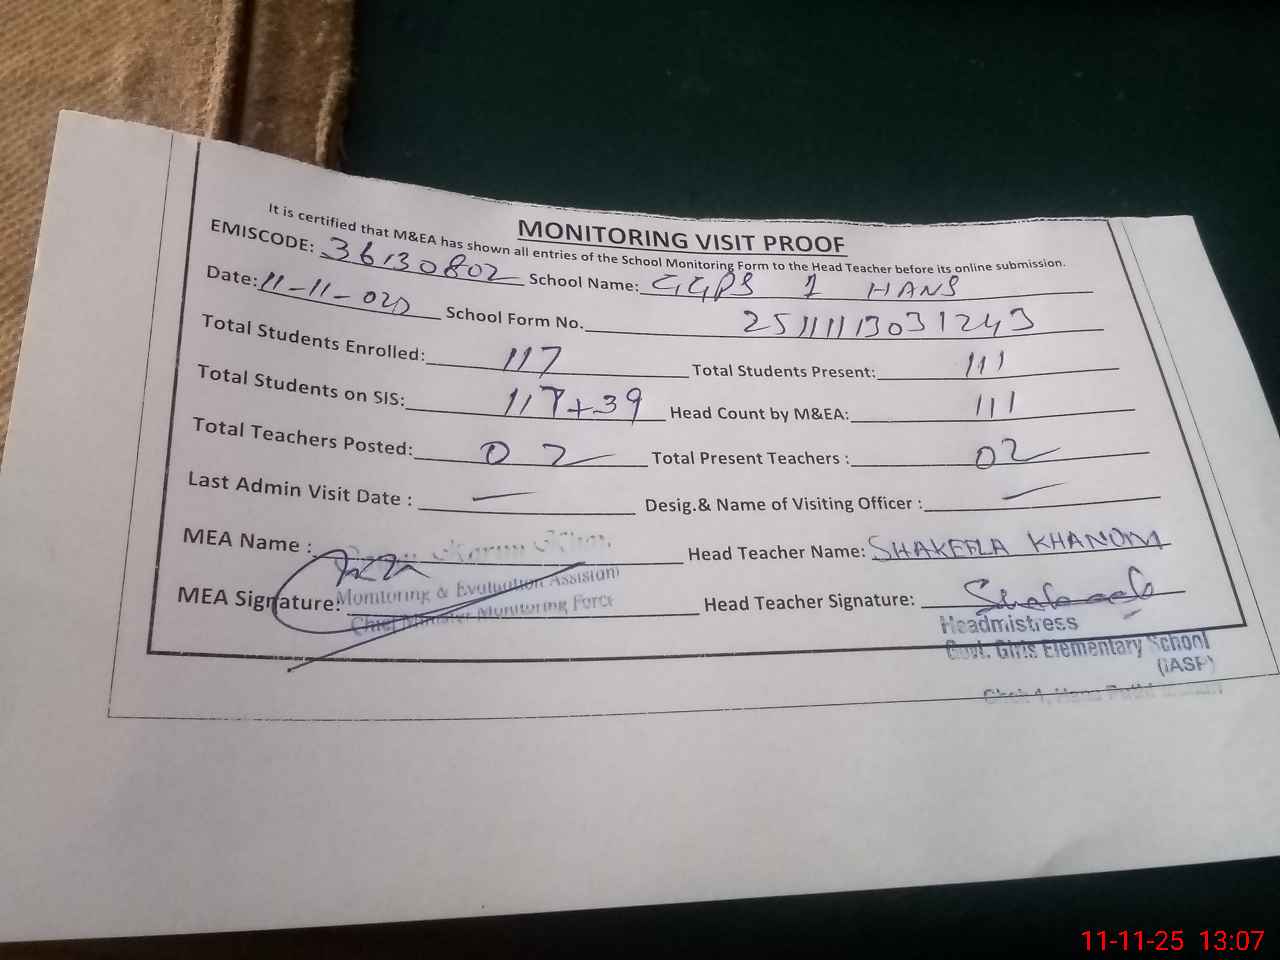 MONITORING VISIT PROOF
It is certified that M&EA has shown all entries of the School Monitoring Form to the Head Teacher before its online submission.
EMISCODE: 36130802 School Name: GGPS 1 HANS
Date: 11-11-020 School Form No. 2511113031243
Total Students Enrolled: 117 Total Students Present: 111
Total Students on SIS: 117+39 Head Count by M&EA: 111
Total Teachers Posted: 02 Total Present Teachers : 02
Last Admin Visit Date : — Desig.& Name of Visiting Officer : —
MEA Name : Head Teacher Name: SHAKEELA KHANOM
Monitoring & Evaluation Assistant
MEA Signature: Head Teacher Signature:
Chief Minister Monitoring Force
Headmistress
Govt. Girls Elementary School
(IASP)
Chak 1, Hans
11-11-25 13:07